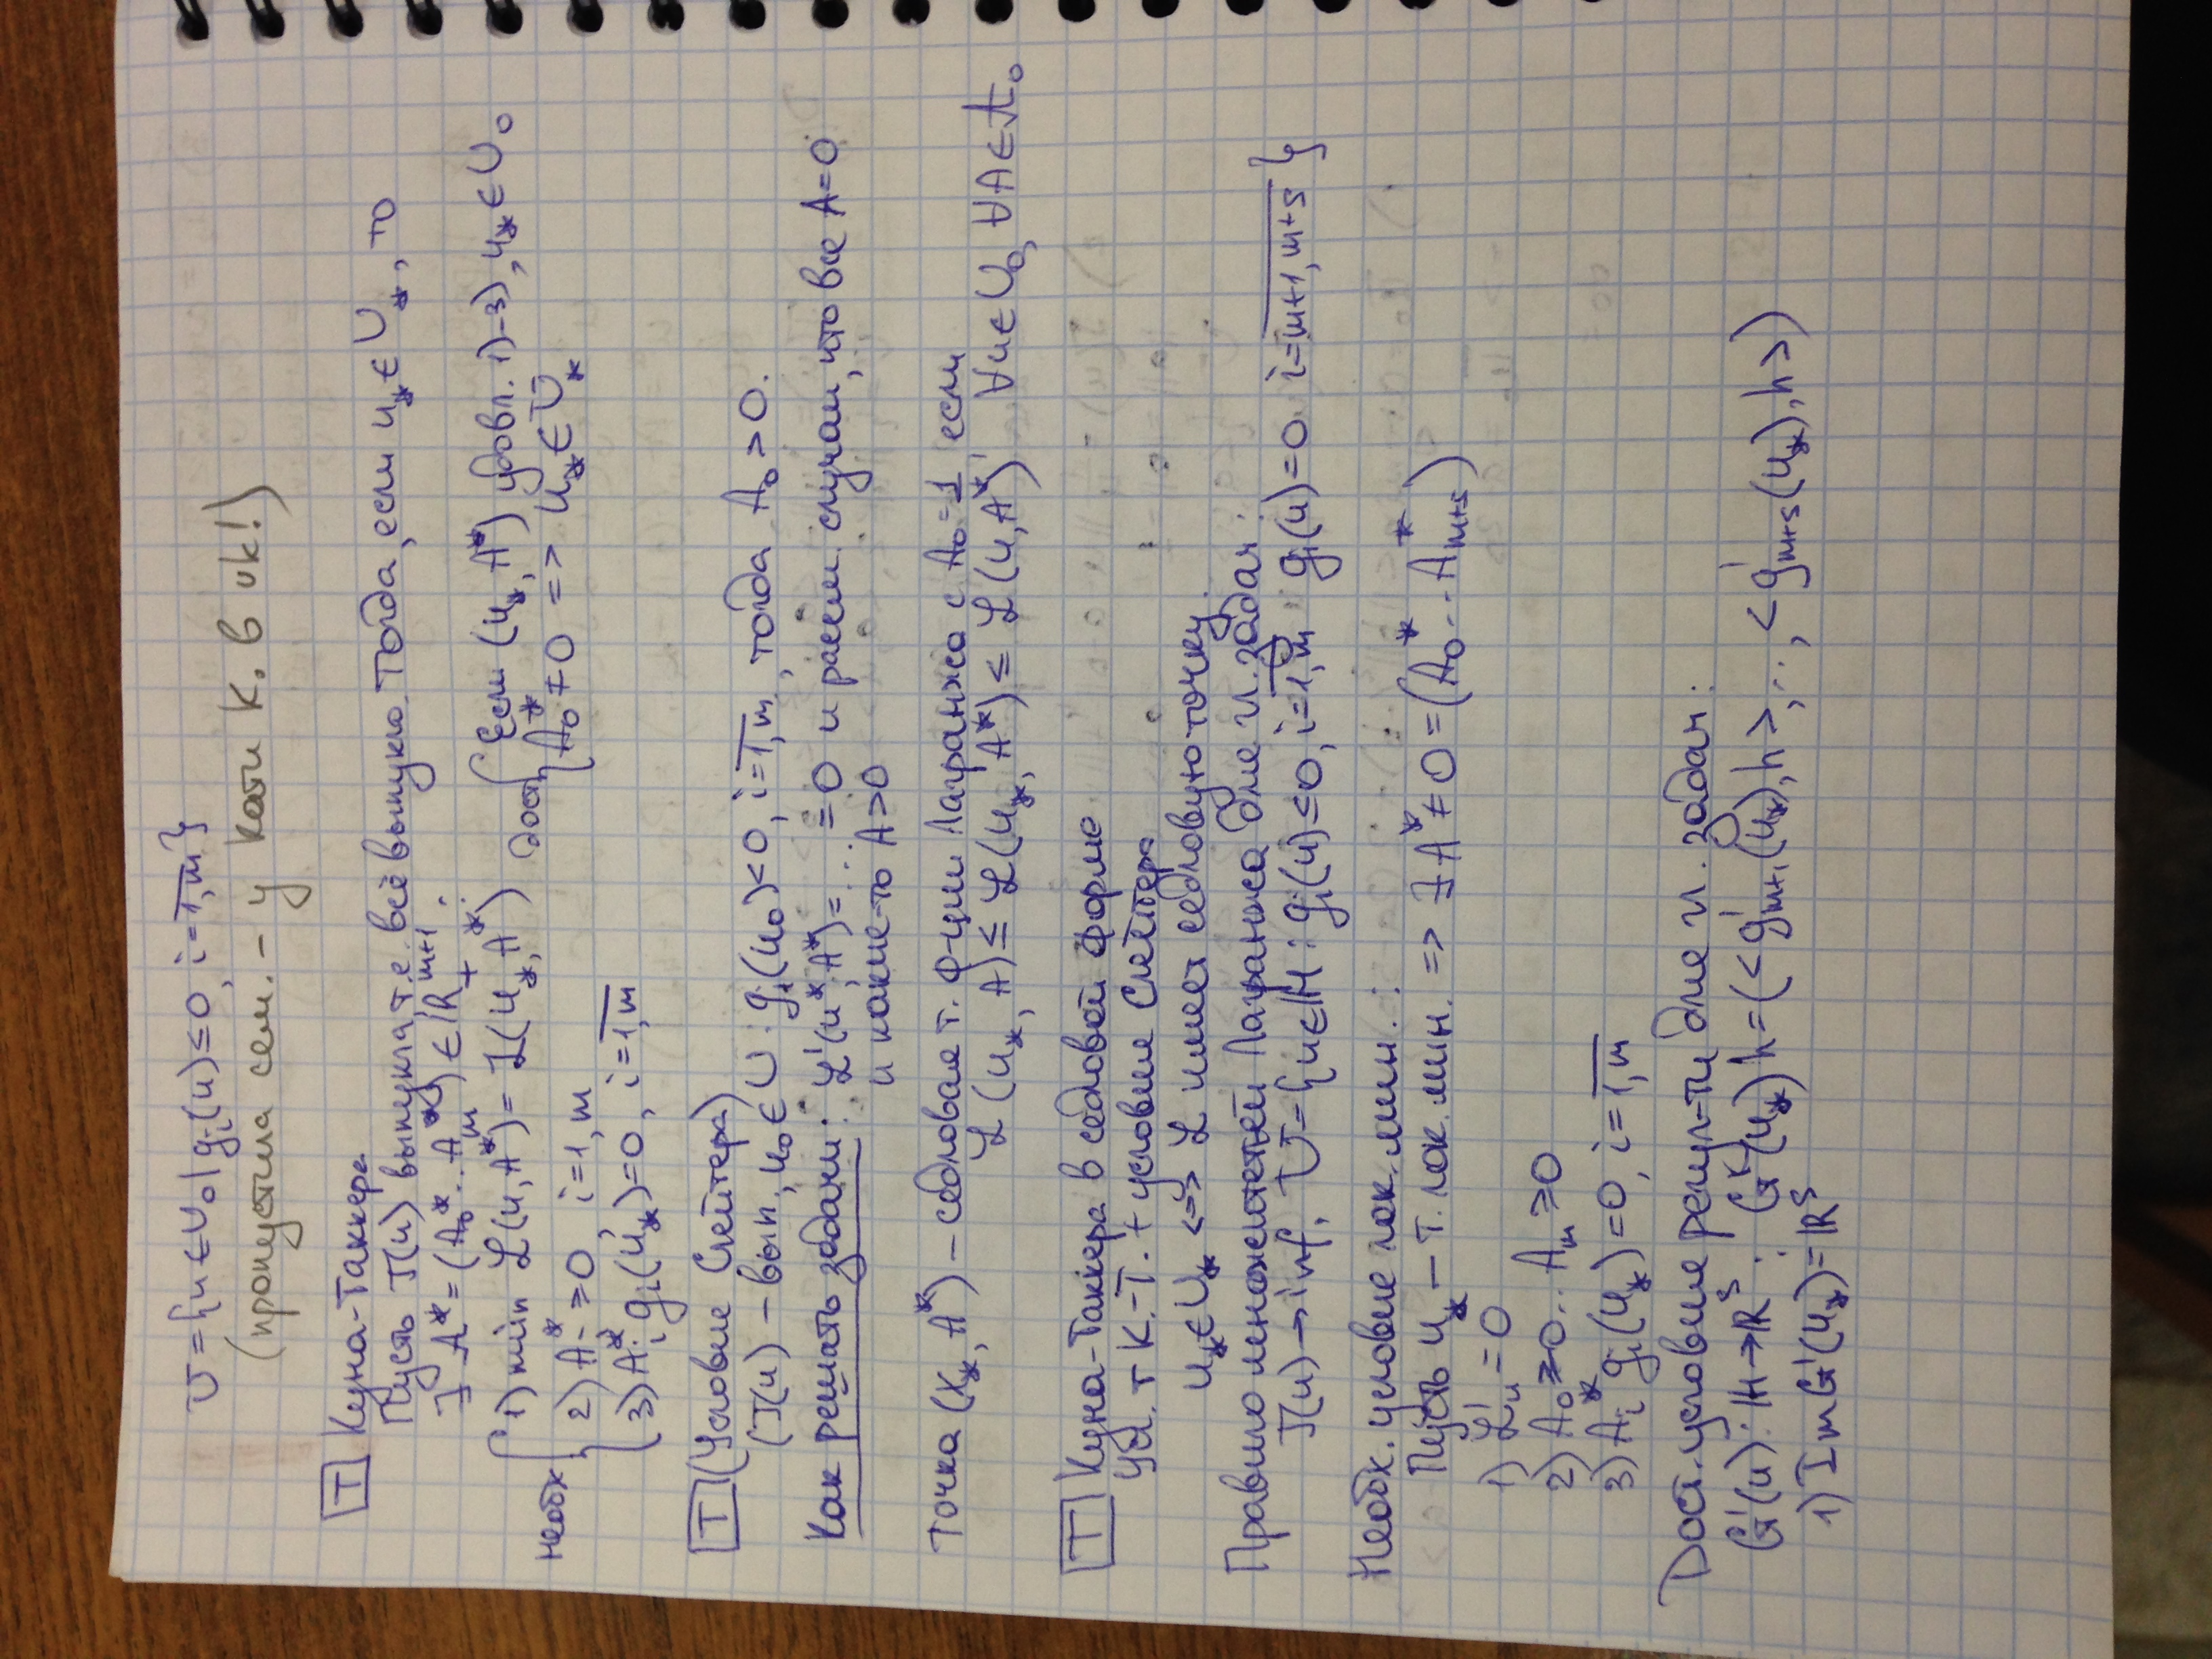 U = {u ∈ U₀ | gᵢ(u) ≤ 0, i = 1,m}
(пропустила сем. - у кати К. в vk!)
[T] Куна-Таккера.
Пусть J(u) выпукла, т.е. всё выпукло. Тогда, если u_* ∈ U_*, то
∃ A* = (A₀*... A_m*) ∈ ℝ₊^{m+1}:
необх { 1) min ℒ(u, A*) = ℒ(u_*, A*)
2) Aᵢ* ≥ 0 i = 1,m
3) Aᵢ* gᵢ(u_*) = 0, i = 1,m
дост { Если (u_*, A*) удовл. 1)-3), u_* ∈ U₀
A₀* ≠ 0 => u_* ∈ U_*
[T] (Условие Слейтера)
(J(u) - вып, u₀ ∈ U : gᵢ(u₀) < 0, i = 1,m, тогда A₀ > 0.
Как решать задачи: ℒ'(u*, A*) = ... = 0 и расем. случаи, что все A = 0
и какие-то A > 0
Точка (x_*, A*) - седловая т. ф-ции Лагранжа с A₀ = 1 если
ℒ(u_*, A) ≤ ℒ(u_*, A*) ≤ ℒ(u, A*) ∀u ∈ U₀, ∀A ∈ Λ₀
[T] Куна-Таккера в седловой форме
усл. т К.-Т. + условие Слейтера
u_* ∈ U_* <=> ℒ имеет седловую точку.
Правило множителей Лагранжа для и. задач:
J(u) → inf, U = {u ∈ ℍ : gᵢ(u) ≤ 0, i = 1,m gᵢ(u) = 0 i = m+1, m+s}
Необх. условие лок. мин.:
Пусть u_* - т. лок. мин. => ∃ A* ≠ 0 = (A₀*... A*_{m+s})
1) ℒ'_u = 0
2) A₀ ≥ 0... A_m ≥ 0
3) Aᵢ* gᵢ(u_*) = 0, i = 1,m
Дост. условие регул-ти для и. задач:
G'(u): ℍ → ℝ^s : G'(u_*)h = (<g'_{m+1}(u_*), h>, ..., <g'_{m+s}(u_*), h>)
1) Im G'(u_*) = ℝ^s